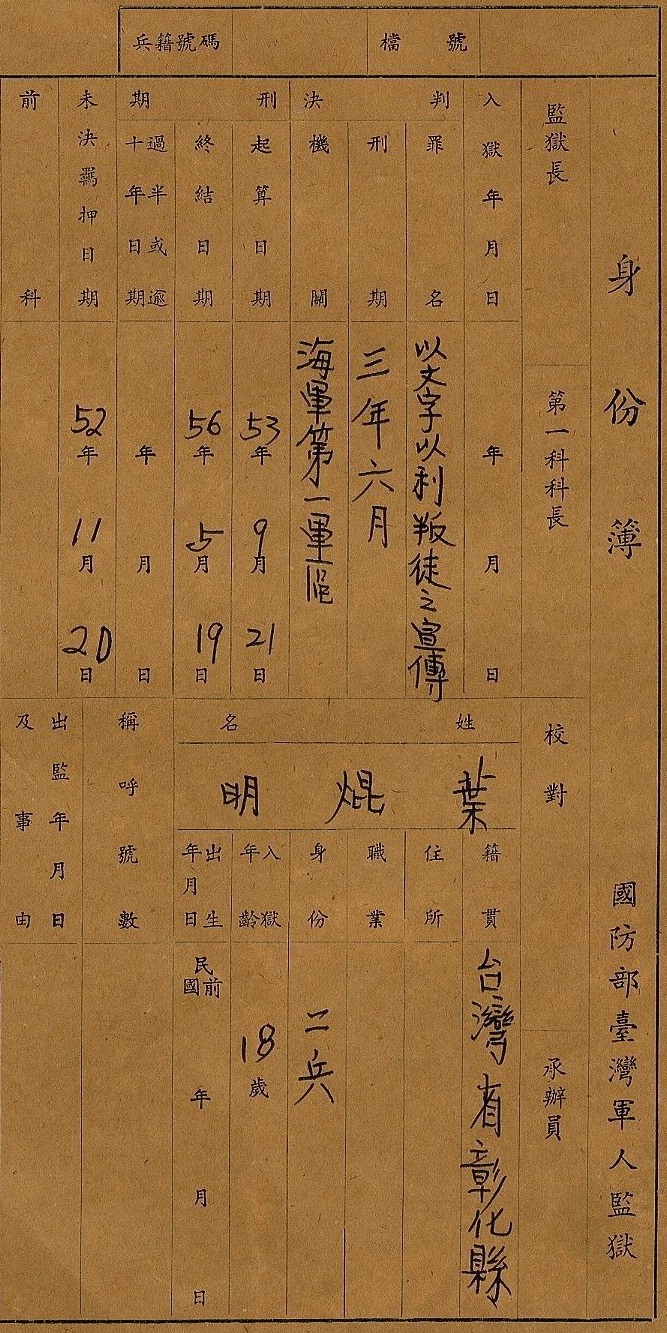 兵籍號碼
檔號
身份簿
國防部臺灣軍人監獄
監獄長
第一科科長
校對
承辦員
入獄年月日
年月日
判決
罪名
以文字以利叛徒之宣傳
刑期
三年六月
機關
海軍第一軍區
刑期
起算日期
53年9月21日
終結日期
56年5月19日
過半或逾十年日期
年月日
未決羈押日期
52年11月20日
前科
姓名
葉焜明
籍貫
台灣省彰化縣
住所
職業
身份
二兵
入獄年齡
18歲
出生年月日
民國前年月日
稱呼號數
出監年月日
及事由